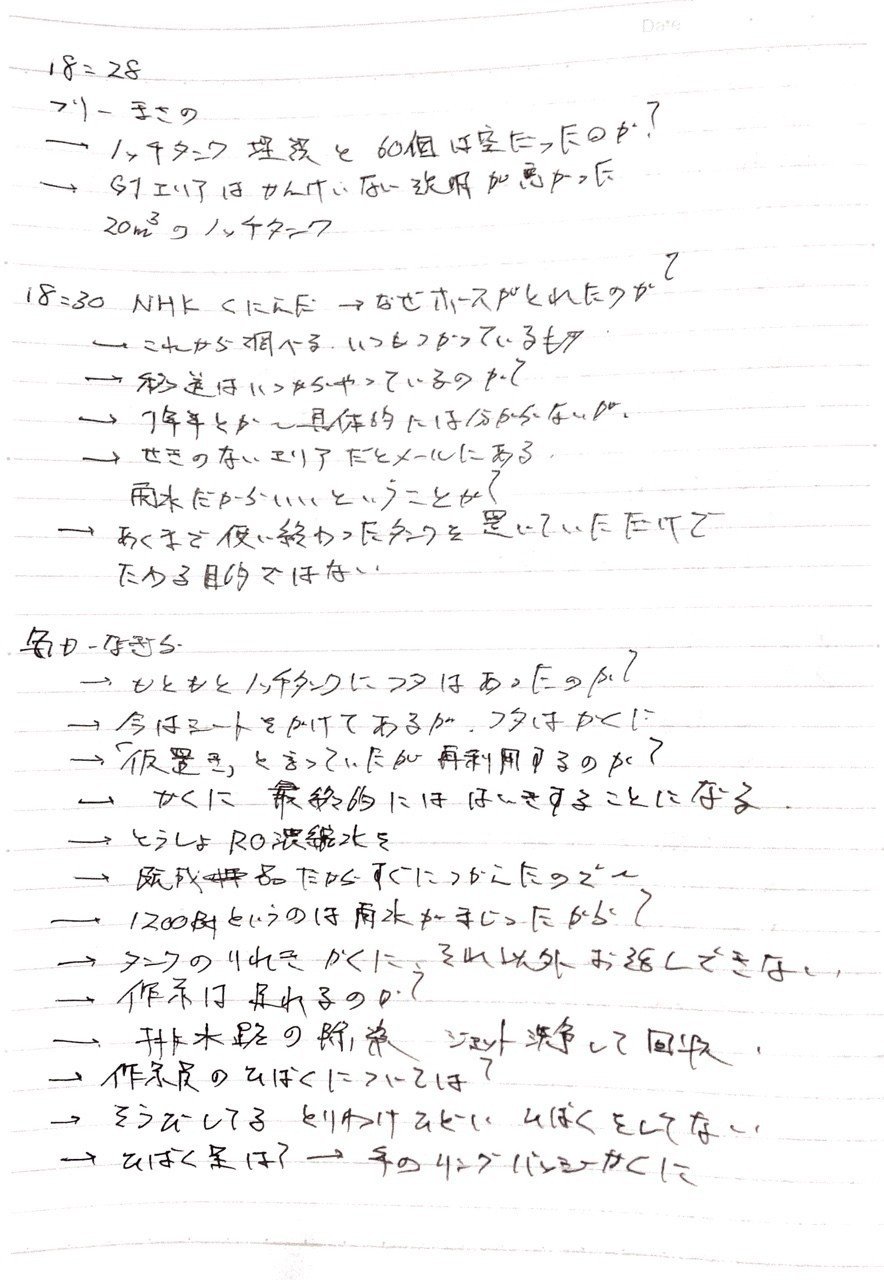 Date
18:28
フリーまさの
→ ノッチタンク 埋設と 60個は空だったのか?
→ G1エリアはかんけいない説明が
20m³のノッチタンク
18:30 NHK くにんだ → なぜホースがとれたのか?
→ これから調べる. いつもつかっているもの
→ 移送はいつからやっているのか?
→ 7年とか〜具体的には分からないが.
→ せきのないエリアだとメールにある.
雨水だからいいということか?
→ あくまで使い終わったタンクを置いていただけで
ためる目的ではない
→ もともとノッチタンクにフタはあったのか?
→ 今はシートをかけてあるが. フタはかくに
→「仮置き」と言っていたが 再利用するのか?
→ かくに 最終的には はいきすることになる.
→ とうしょ RO濃縮水を
→ 既成品だからすぐにつかえたので〜
→ 1200Bqというのは雨水がまじったから?
→ タンクのりれき かくに、それ以外お話しできない.
→ 作業は 足れるのか?
→ 排水路の除染 ジェット洗浄して回収.
→ 作業員のひばくについては?
→ そうびしてる とりわけひどい ひばくをしてない
→ ひばく量は? → 手のリングバッジ かくに